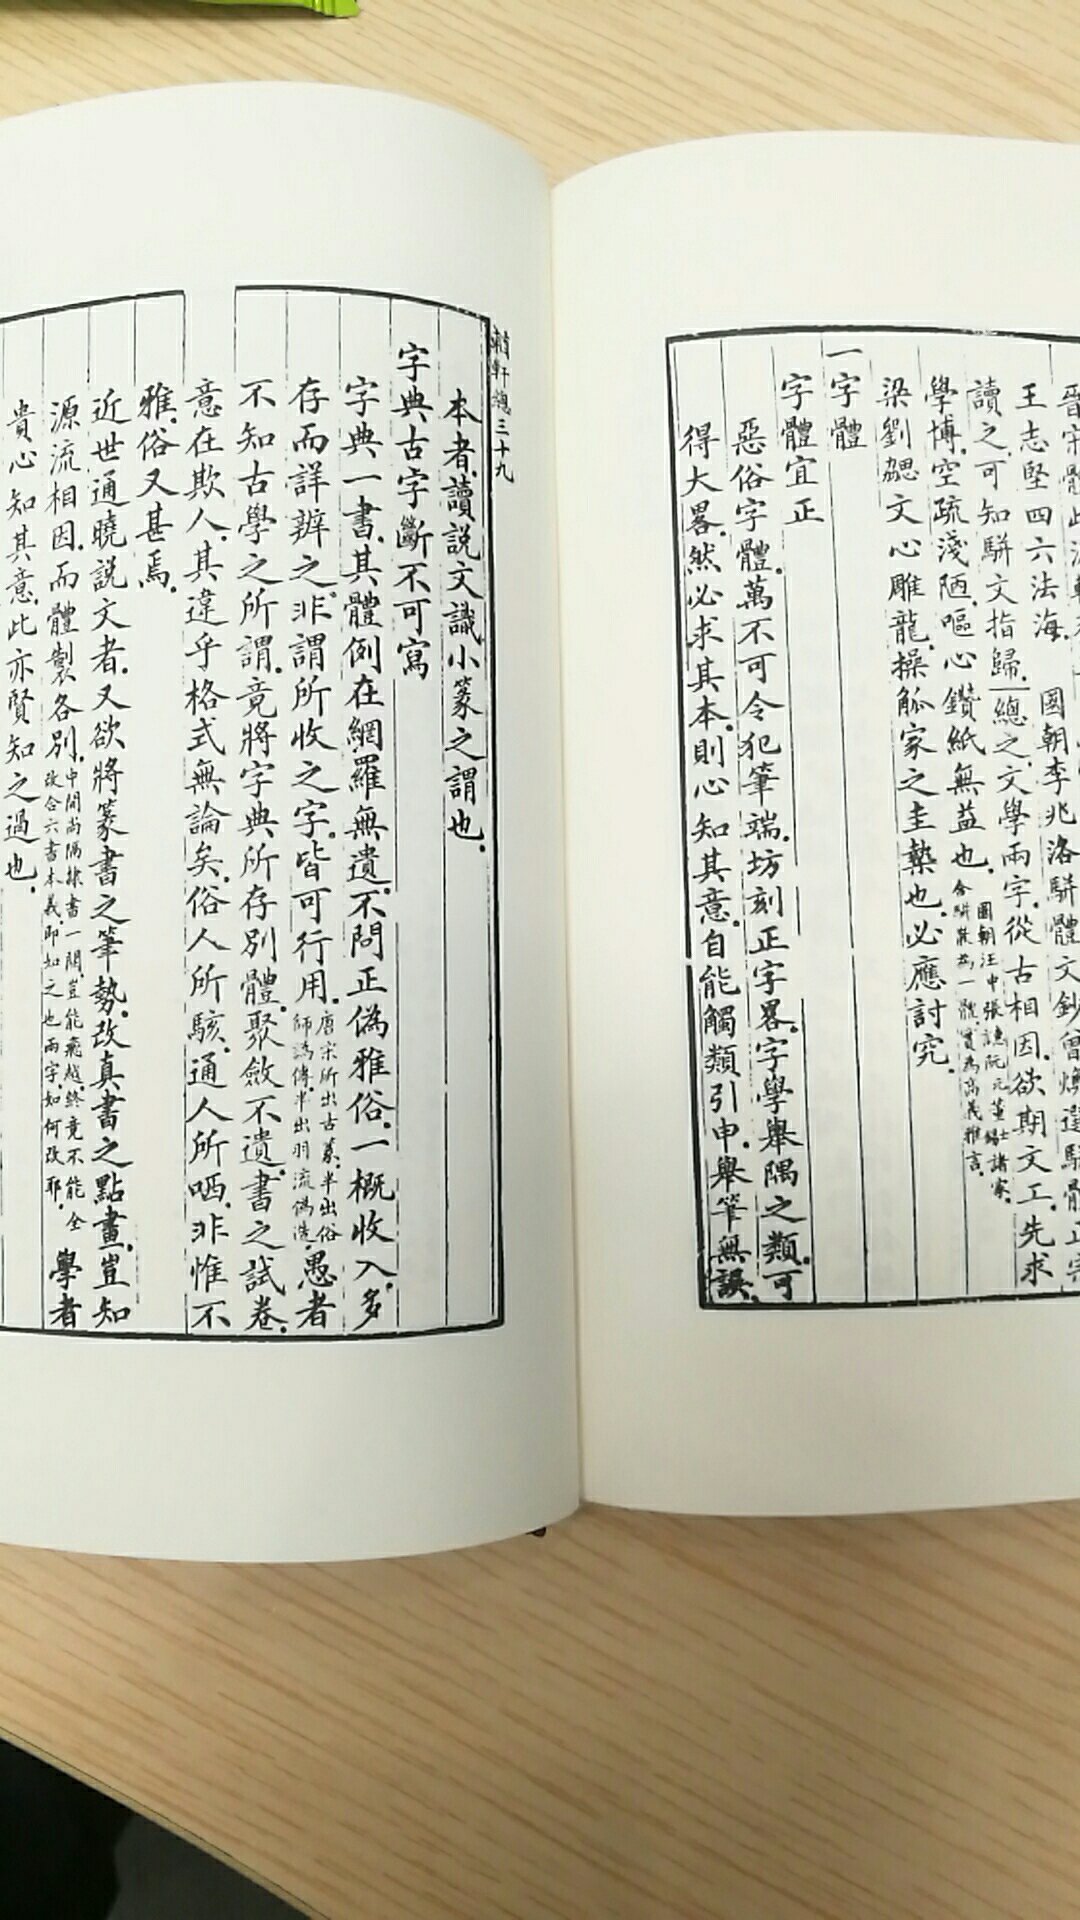 王志堅四六法海 國朝李兆洛駢體文鈔曾燠選駢體正宗
讀之可知駢文指歸總之文學兩字從古相因欲期文工先求
學博空疏淺陋嘔心鑽紙無益也國朝汪中張諸家
合駢散為一體實為高義雅言
梁劉勰文心雕龍操觚家之圭臬也必應討究
一字體
字體宜正
惡俗字體萬不可令犯筆端坊刻正字畧字學舉隅之類可
得大畧然必求其本則心知其意自能觸類引申舉筆無誤
輶軒 三十九
本者讀說文識小篆之謂也
字典古字斷不可寫
字典一書其體例在網羅無遺不問正偽雅俗一概收入多
存而詳辨之非謂所收之字皆可行用唐宋所出古篆半出俗
師譌傳半出羽流偽造愚者
不知古學之所謂竟將字典所存別體聚斂不遺書之試卷
意在欺人其違乎格式無論矣俗人所駭通人所哂非惟不
雅俗又甚焉
近世通曉說文者又欲將篆書之筆勢改真書之點畫豈知
源流相因而體製各別中間尚隔隸書一關豈能飛越終竟不能全
改合六書本義即如之也兩字如何改耶學者
貴心知其意此亦賢知之過也